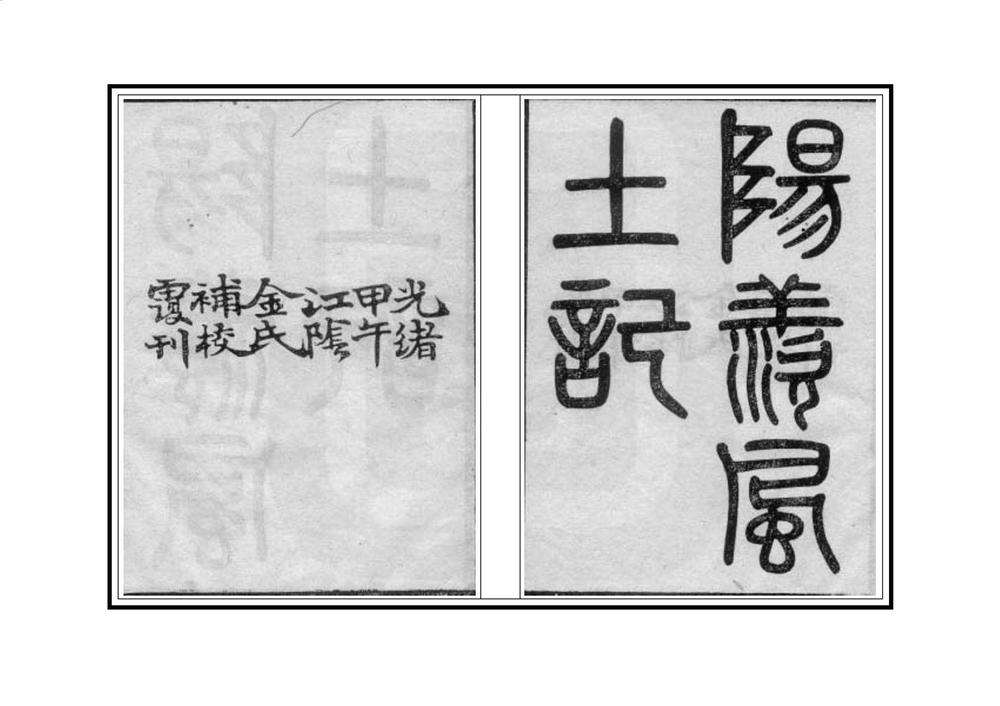 陽羨風
土記
光緒
甲午
江陰
金氏
補校
覆刊